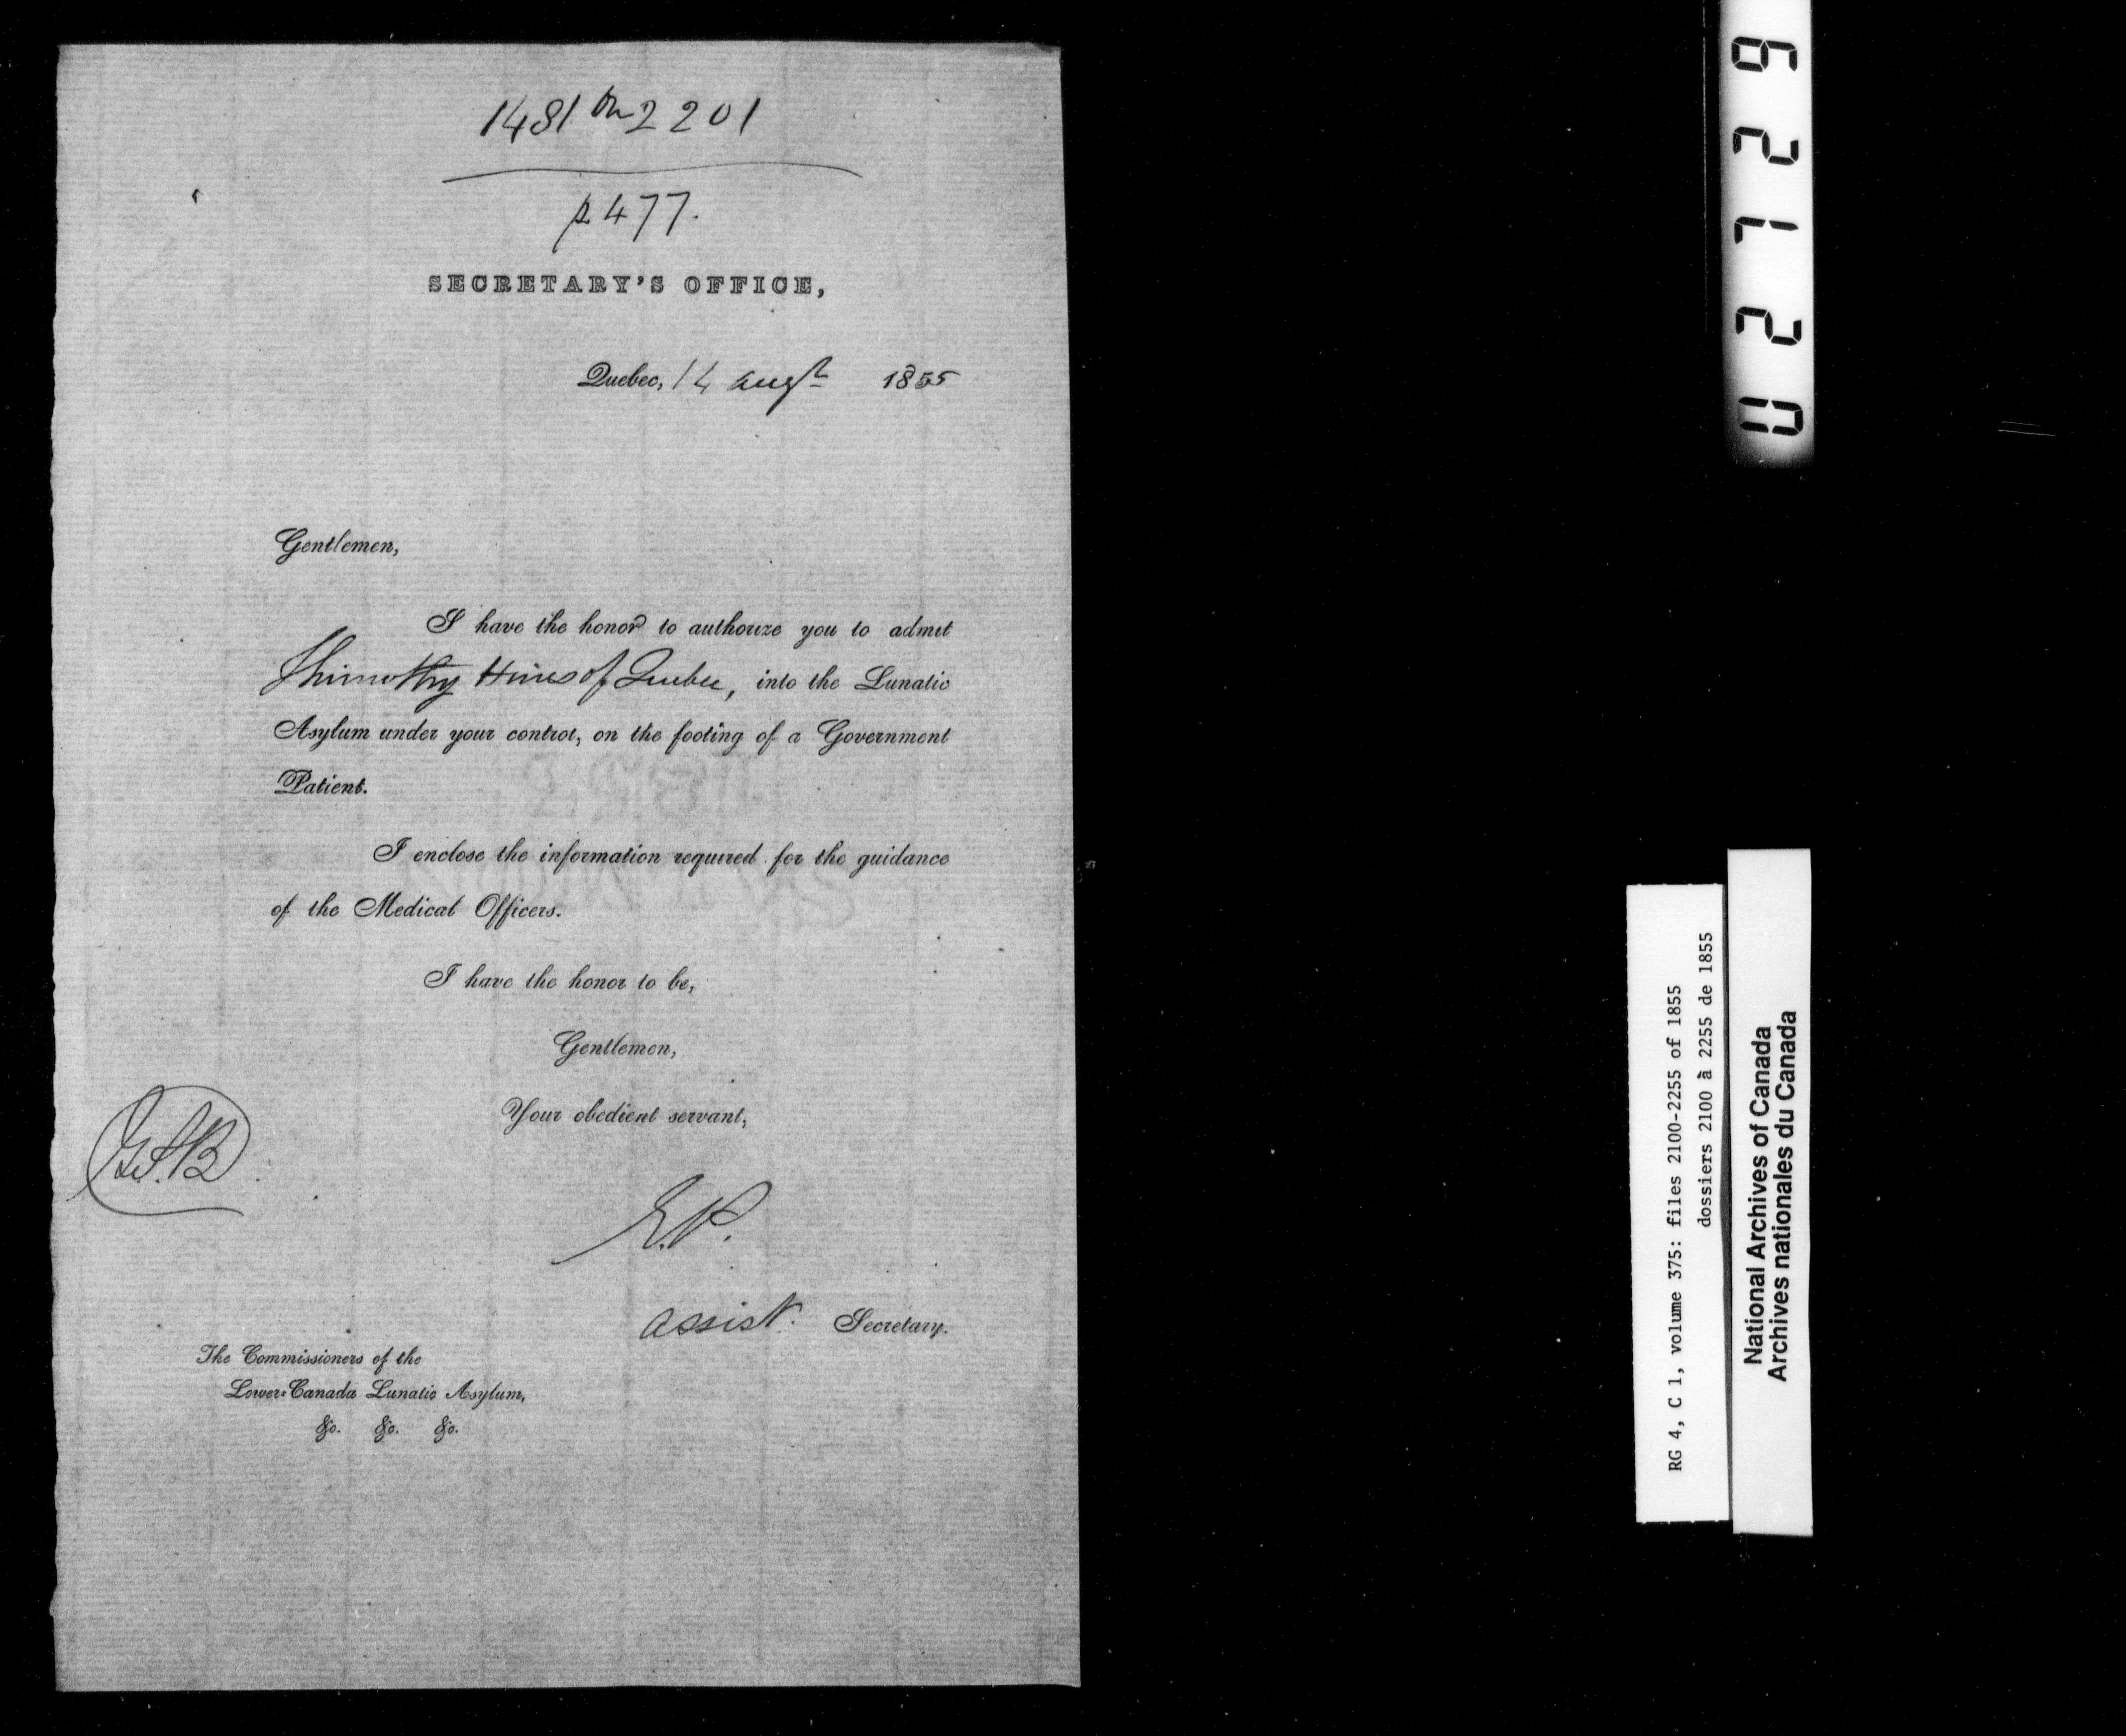 1481 on 2201
p 477.
SECRETARY'S OFFICE,
Quebec, 14 augt 1855
Gentlemen,
I have the honor to authorize you to admit
Thimothy Hines of Quebec, into the Lunatic
Asylum under your control, on the footing of a Government
Patient.
I enclose the information required for the guidance
of the Medical Officers.
I have the honor to be,
Gentlemen,
Your obedient servant,
E.P.
assist. Secretary.
The Commissioners of the
Lower-Canada Lunatic Asylum,
&c. &c. &c.
RG 4, C 1, volume 375: files 2100-2255 of 1855
dossiers 2100 à 2255 de 1855
National Archives of Canada
Archives nationales du Canada